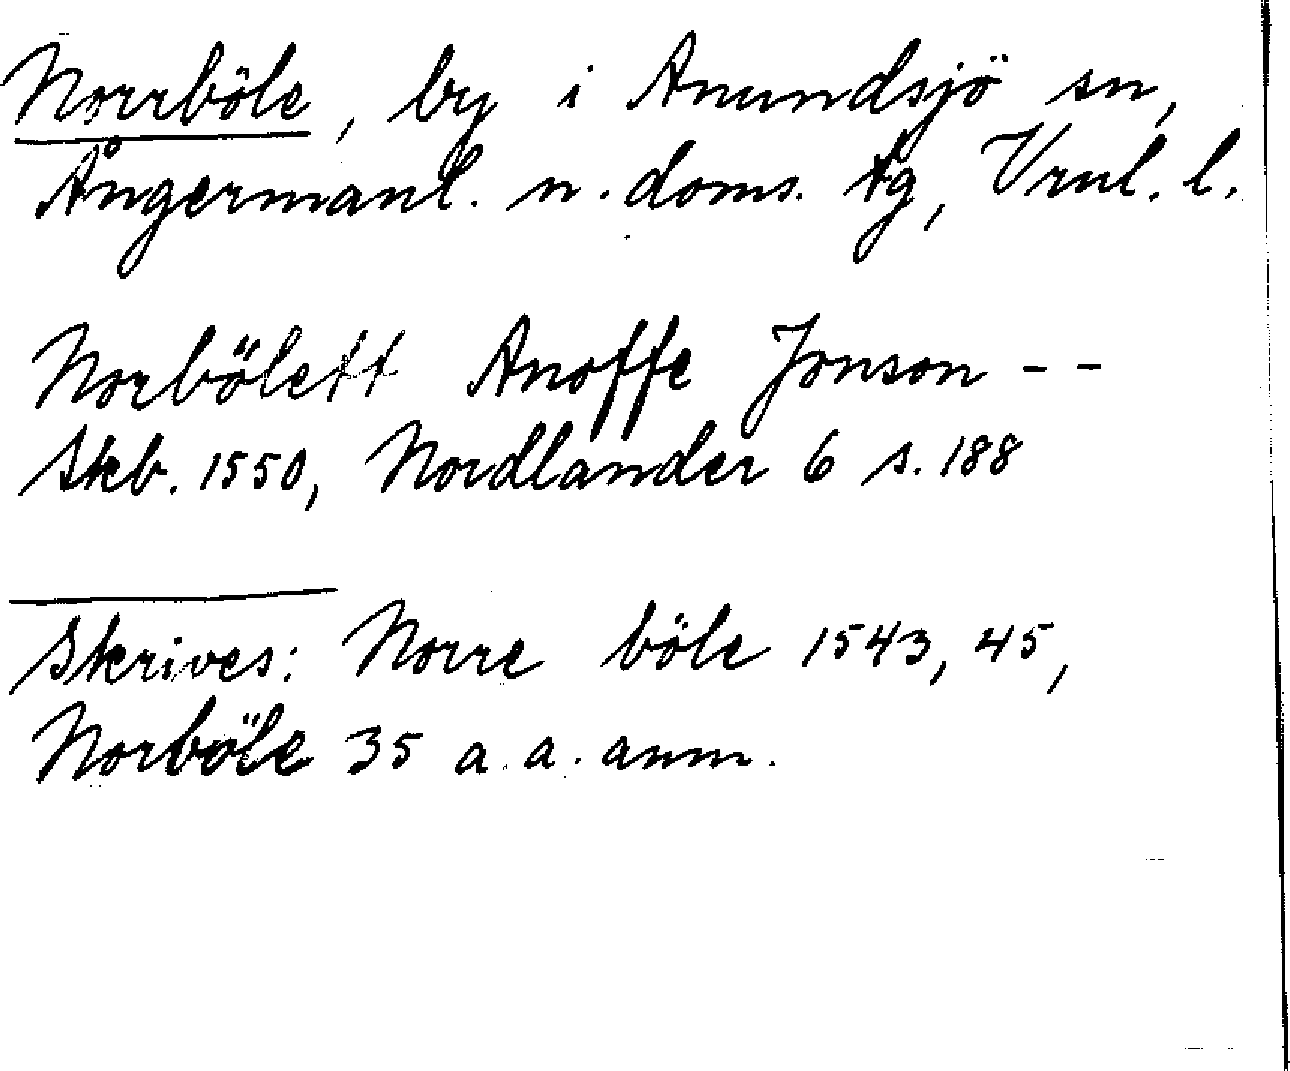 Norrböle, by i Anundsjö sn,
Ångermanl. n. doms. tg, Vrnl. l.
Norbölett Anoffe Jonson - -
Skb. 1550, Nordlander 6 s. 188
Skrives: Norre böle 1543, 45,
Norböle 35 a. a. anm.